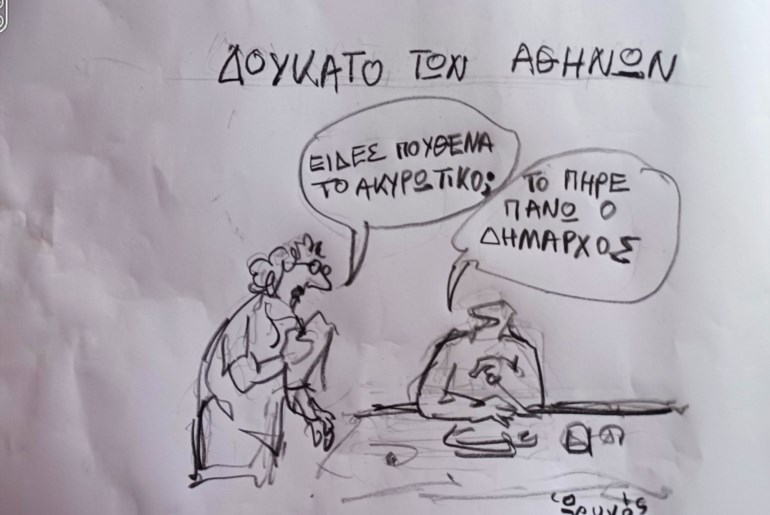 ΔΟΥΚΑΤΟ ΤΩΝ ΑΘΗΝΩΝ
ΕΙΔΕΣ ΠΟΥΘΕΝΑ
ΤΟ ΑΚΥΡΩΤΙΚΟ;
ΤΟ ΠΗΡΕ
ΠΑΝΩ Ο
ΔΗΜΑΡΧΟΣ